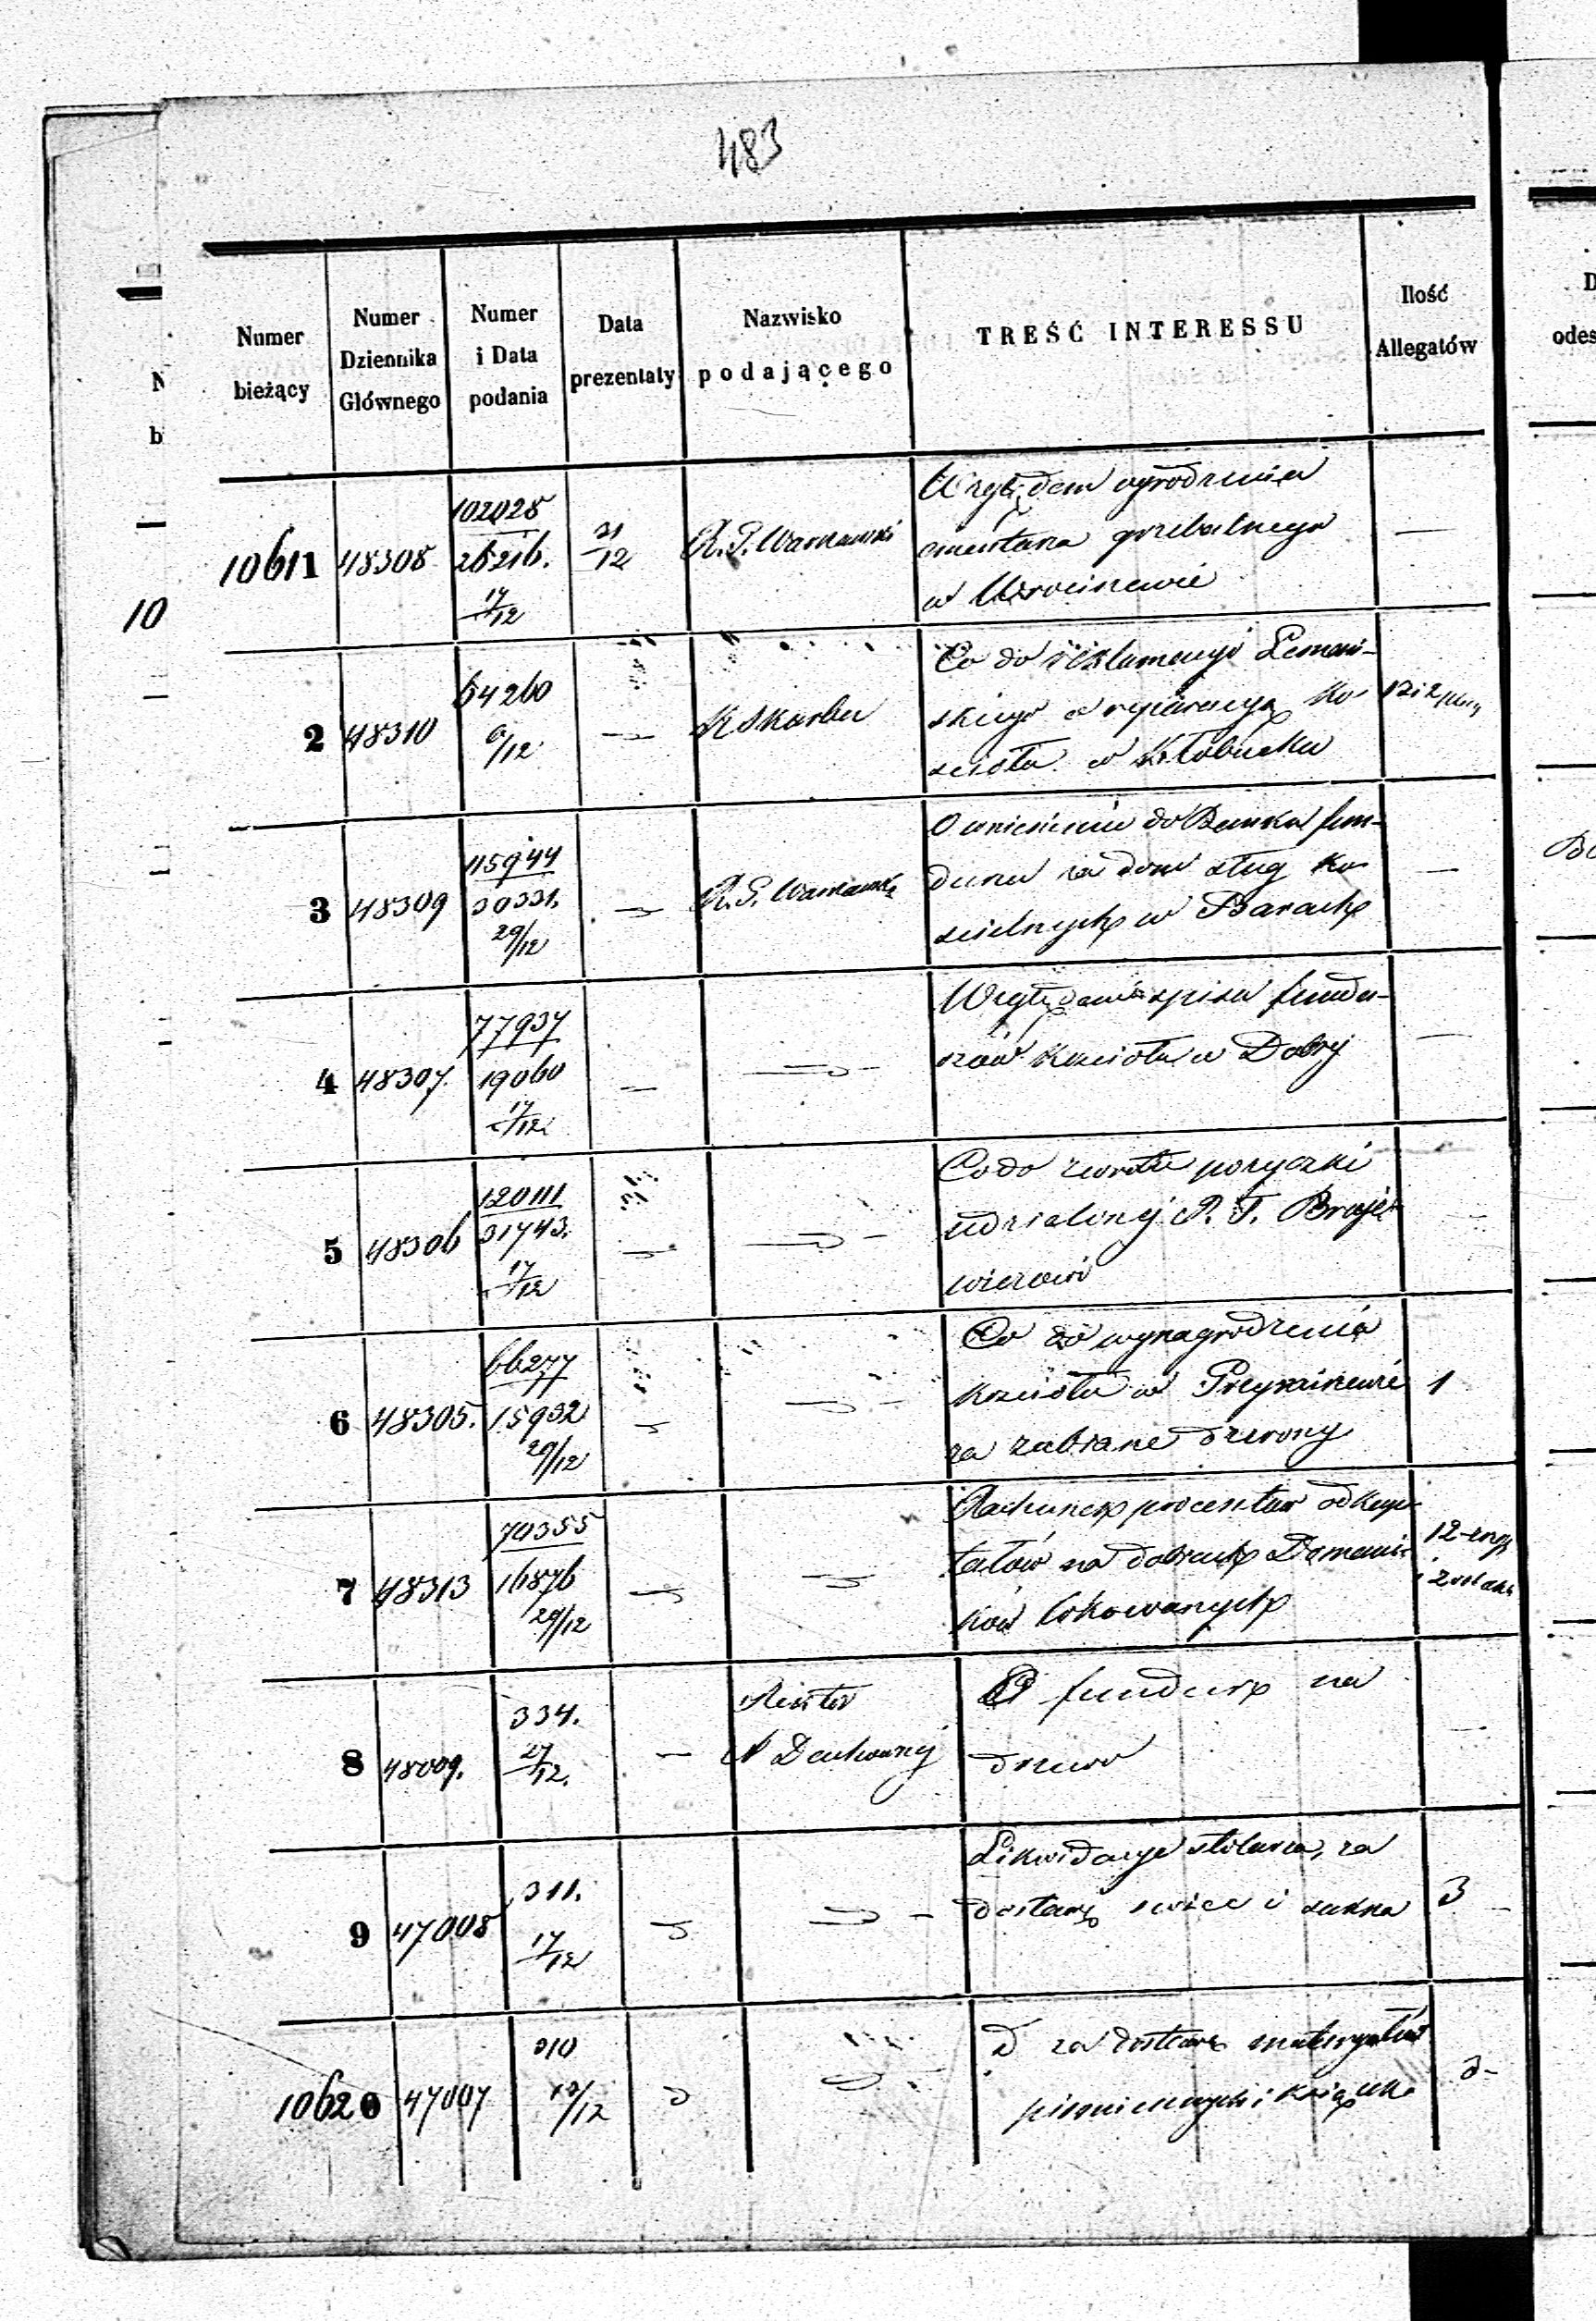 483
Numer bieżący
Numer Dziennika Głównego
Numer i Data podania
Data prezentaty
Nazwisko podającego
TREŚĆ INTERESSU
Ilość Allegatów
10611 48308 102028 26216. 17/12 31/12 R. G. Warszawski
Względem ogrodzenia
cmentarza grzebalnego
w
—
2 48310 64260 6/12 — K Skarbu
Co do reklamacyi Lemań-
skiego o reparacyą ko-
scioła w Kłobucku
3 48309 115944 30331. 29/12 — R. G. Warszawski
O wniesienie do Banku fun-
duszu za dom sług ko-
scielnych w Barach
—
4 48307. 77937 19060 17/12 —
Względem spisu fundu-
szów kościoła w Dobrej
—
5 48306 120111 31743. 17/12 —
Co do zwrotu pożyczki
udzielonej P. T.
wiczowi
6 48305. 66277 15932 29/12
Co do wynagrodzenia
kościoła w
za zabrane dzwony
1
7 48313 70355 16876 29/12
Rachunek procentów od kapi-
tałów na dobrach Domini-
ków lokowanych
12
8 48009. 334. 27/12. — Rektor
A Duchownej
O fundusz na
drzewo
—
9 47008 311. 17/12
Likwidacye stolarza, za
dostawę świec i sukna
3
10620 47007 310 12/12
D za dostawę materyałów
pismiennych i książek
3-
N
b
10
D
odes